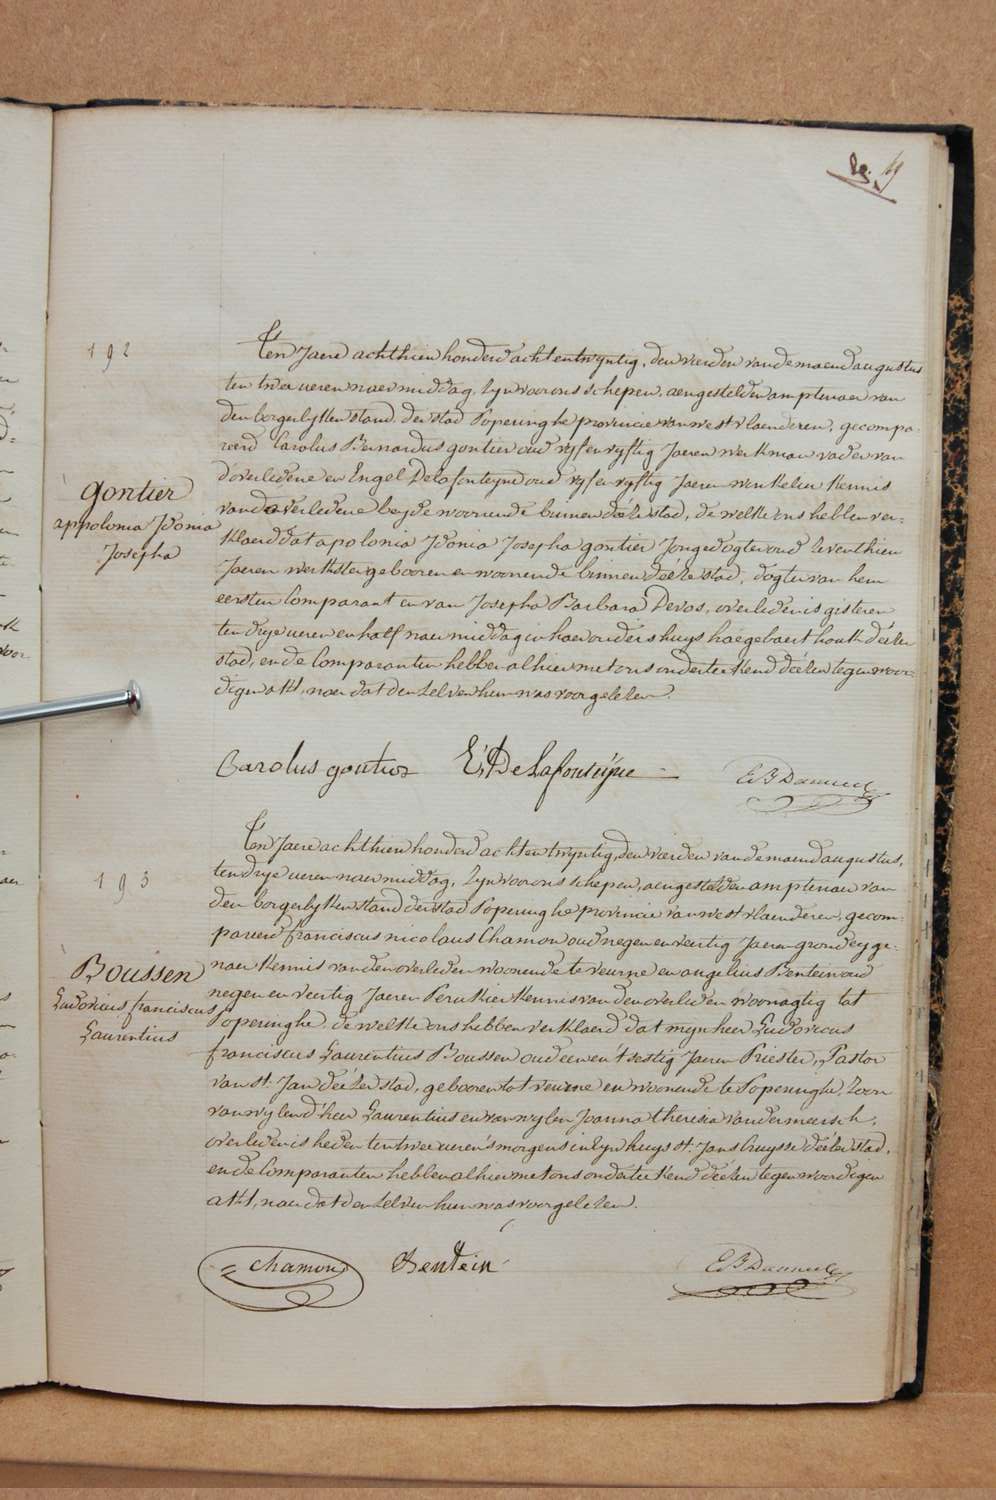 49
192
Ten Jaere achthien honderd achtentwyntig, den vierden van de maend augustus
ten twee ueren naer middag, zyn voor ons schepen, aengestelden amptenaer van
den borgerlyken stand der stad Poperinghe provincie van west vlaenderen, gecompa-
reerd Carolus Bernardus gontier oud vyfenvyftig Jaeren werkman vader van
d'overledene en Engel Delafonteyne oud vyfenvyftig Jaeren winkelier kennis
gontier
appolonia Idonia
Josepha
van de overledene beyde woonende binnen déeze stad, de welke ons hebben ver-
klaerd dat apolonia Idonia Josepha gontier Jonge dogter oud zeventhien
Jaeren werkster gebooren en woonende binnen déeze stad, dogter van hem
eersten Comparant en van Josepha Barbara Devos, overleden is gisteren
ten drye ueren en half naer middag in haer ouders huys haegebaert houk déézer
stad, en de Comparanten hebben alhier met ons onderteekend déézen tegenwoor-
digen akt, naer dat den zelven hun was voorgelezen.
Carolus gontier E: DeLafonteyne
193
Ten Jaere achthien honderd achtentwyntig, den vierden van de maend augustus,
ten drye ueren naer middag, zyn voor ons schepen, aengestelden amptenaer van
den borgerlyken stand der stad Poperinghe provincie van west vlaenderen, gecom-
pareerd franciscus nicolaus Chamon oud negenenveertig Jaeren grondeyge-
Boussen
Ludovicus franciscus
Laurentius
naer kennis van den overleden woonende te veurne en angelius Bentein oud
negenenveertig Jaeren Perukier kennis van den overleden woonagtig tot
Poperinghe, de welke ons hebben verklaerd dat mynheer Ludovicus
franciscus Laurentius Boussen oud eenen't sestig Jaeren Priester, Pastor
van st. Jan déézer stad, gebooren tot veurne en woonende te Poperinghe, zoon
van wylen d'heer Laurentius en van wylen Joanna theresia vandermeersch,
overleden is heden ten twee ueren s'morgens in zyn huys st. Jans Cruysse déézer stad,
en de Comparanten hebben alhier met ons onderteekend déézen tegenwoordigen
akt, naer dat den zelven hun was voorgelezen.
Chamon Bentein